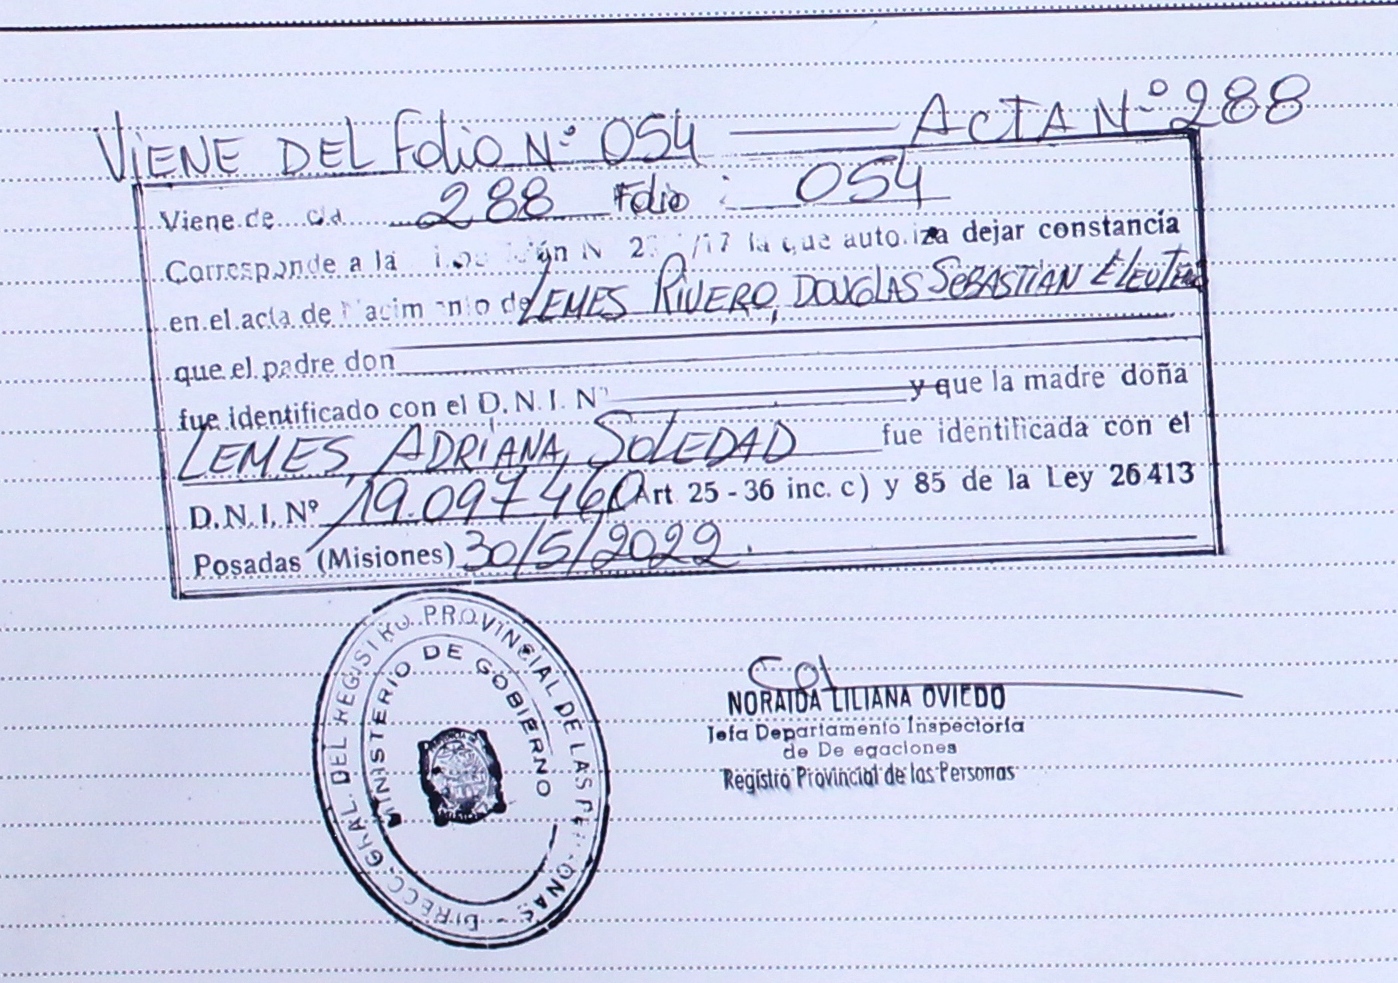 VIENE DEL Folio N° 054 ACTA N° 288
Viene de 288 Folio: 054
Corresponde a la N /17 la que autoriza dejar constancia
en el acta de Nacimiento de LEMES RIVERO, DOUGLAS SEBASTIAN
que el padre don
fue identificado con el D.N.I. N° y que la madre doña
LEMES, ADRIANA, SOLEDAD fue identificada con el
D.N.I. N° 19.097.460 Art 25 - 36 inc. c) y 85 de la Ley 26.413
Posadas (Misiones) 30/5/2022.
DIRECC. GRAL. DEL REGISTRO PROVINCIAL DE LAS PERSONAS
MINISTERIO DE GOBIERNO
NORAIDA LILIANA OVIEDO
Jefa Departamento Inspectoría
de Delegaciones
Registro Provincial de las Personas